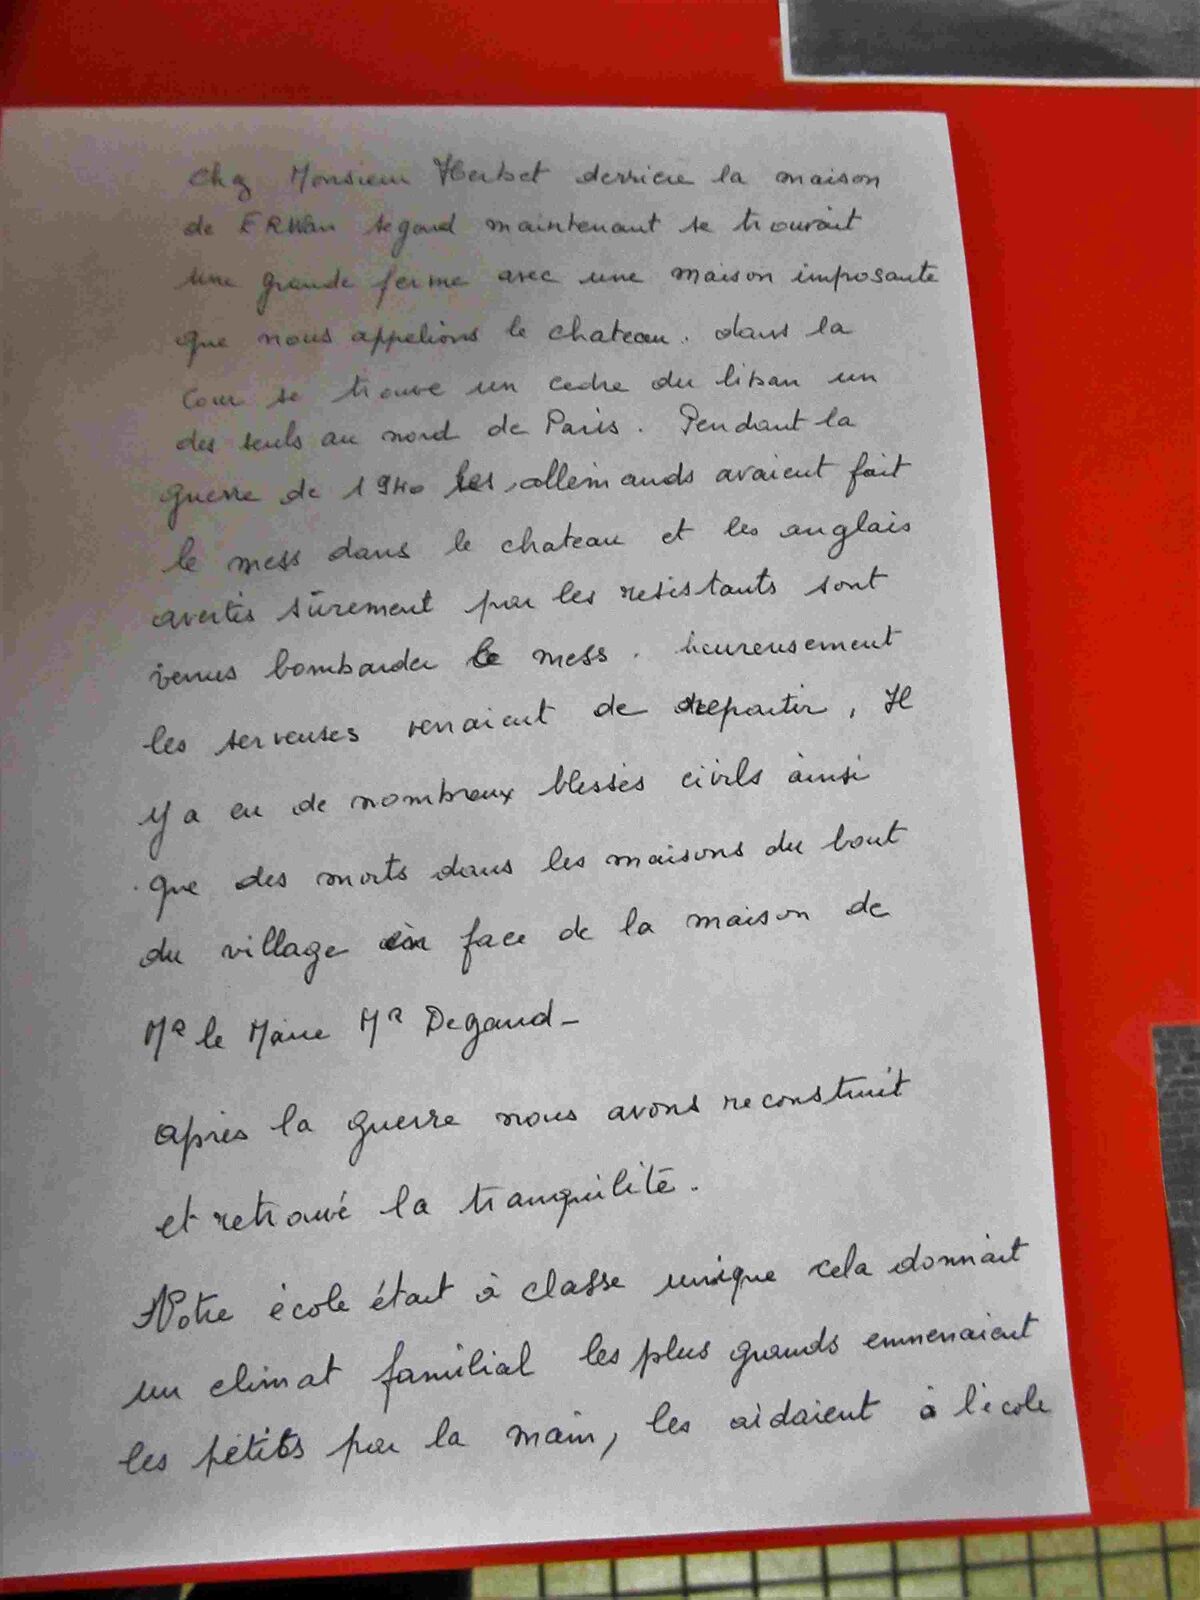 chez Monsieur Herbet derriere la maison
de ERWan segond maintenant se trouvait
une grande ferme avec une maison imposante
que nous appelions le chateau. dans la
cour se trouve un cedre du liban un
des seuls au nord de Paris. Pendant la
guerre de 1940 les allemands avaient fait
le mess dans le chateau et les anglais
avertis sûrement par les resistants sont
venus bombarder le mess. heureusement
les serveuses venaient de repartir, Il
y a eu de nombreux blessés civils ainsi
que des morts dans les maisons du bout
du village en face de la maison de
Mr le Maire Mr Degand -
après la guerre nous avons reconstruit
et retrouvé la tranquilité.
Notre école était à classe unique cela donnait
un climat familial les plus grands emmenaient
les petits par la main, les aidaient à l'école